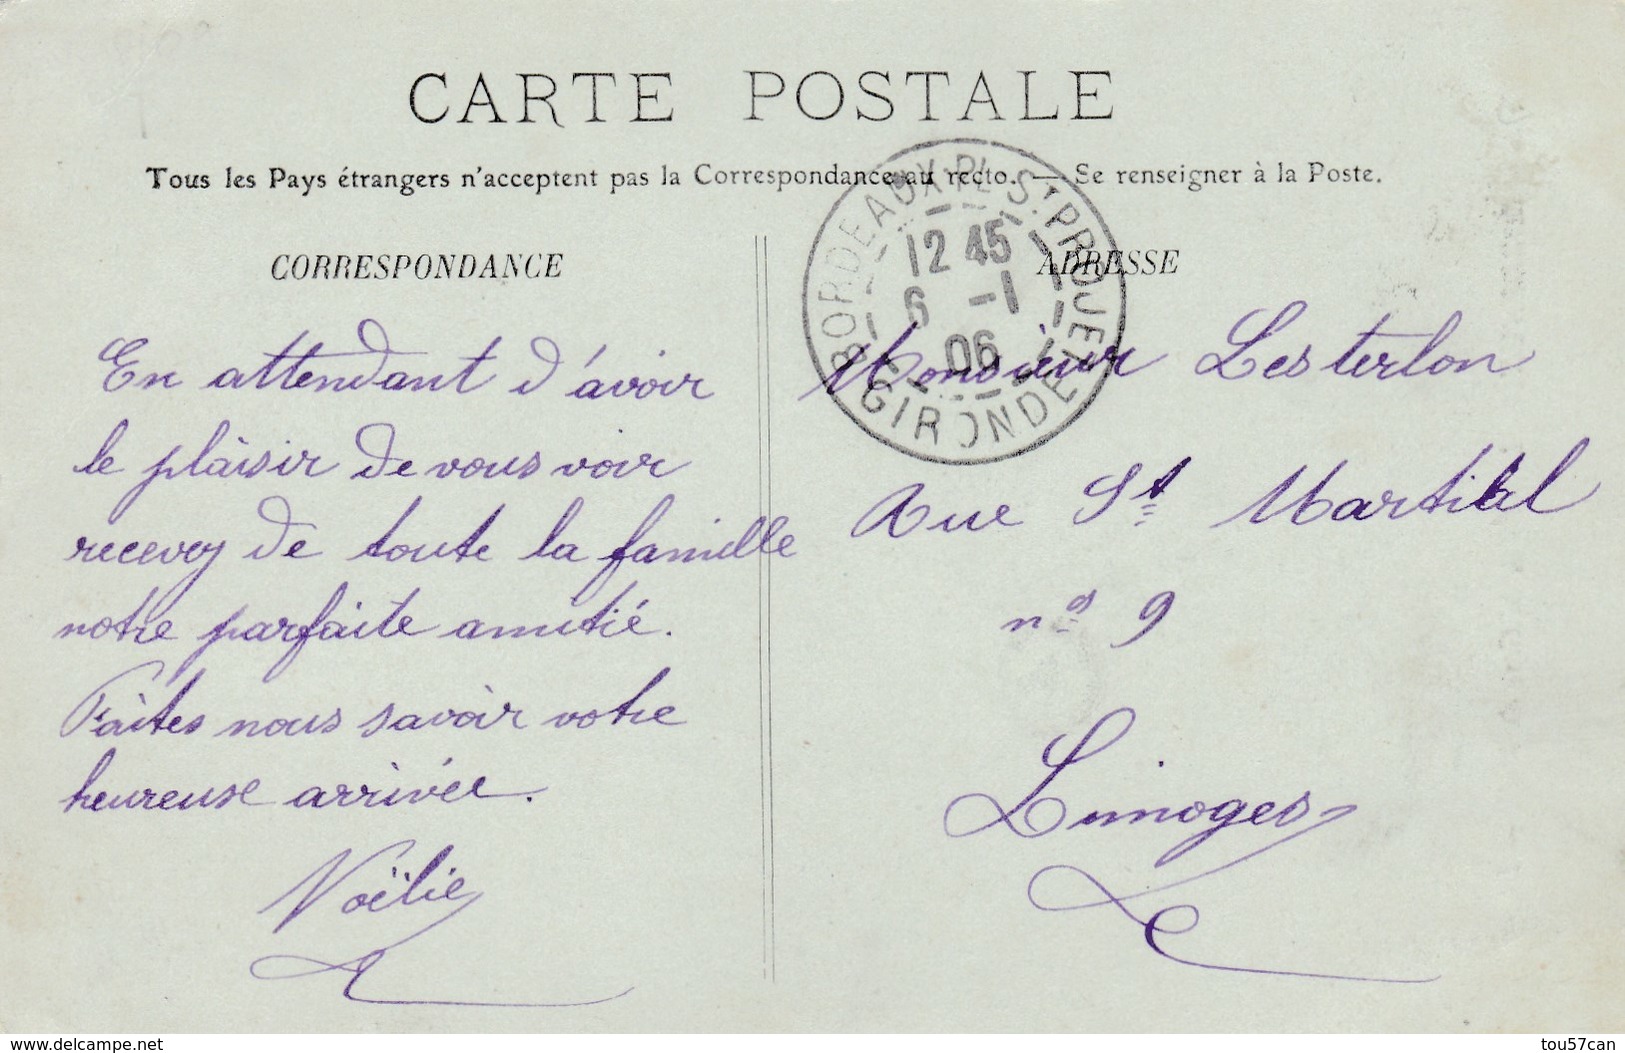 CARTE POSTALE
Tous les Pays étrangers n'acceptent pas la Correspondance au recto. — Se renseigner à la Poste.
CORRESPONDANCE
En attendant d'avoir
le plaisir de vous voir
recevez de toute la famille
notre parfaite amitié.
Faites nous savoir votre
heureuse arrivée.
Noëlie
BORDEAUX-PL. ST PROJET
12 45
6 -1
06
GIRONDE
ADRESSE
Monsieur Lesterlon
Rue St Martial
no 9
Limoges
www.delcampe.net
tou57can